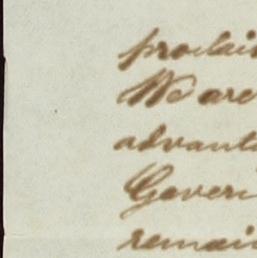 proclai
We are
advanta
Govern
remain